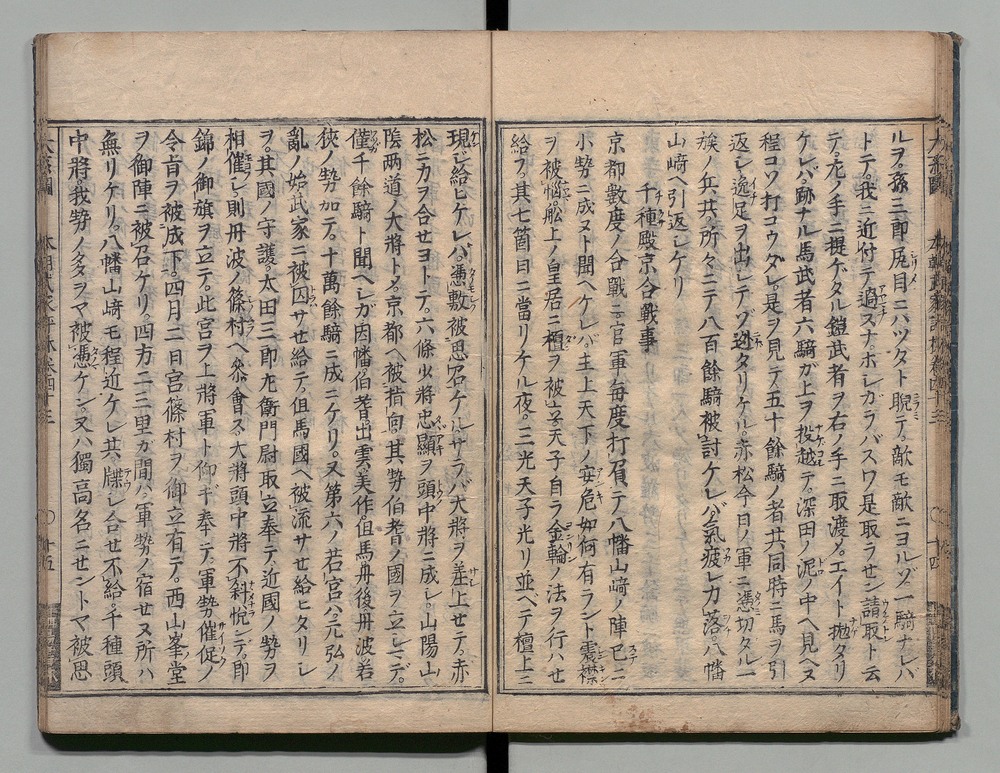 ルヲ。孫三郎尻目ニハツタト睨テ。敵モ敵ニヨルゾ一騎ナレバ
トテ。我ニ近付テ過スナ。ホレガラバスワ是取ラせン請取ト云
テ。左ノ手ニ提ゲタル鎧武者ヲ右ノ手ニ取渡ノ。エイト抛タリ
ケレバ。跡ナル馬武者六騎ガ上ヲ投越テ。深田ノ泥ノ中ヘ見ヘヌ
程コソ打コウダレ。是ヲ見テ五十餘騎ノ者共同時ニ馬ヲ引
返シ逸足ヲ出シテゾ迯タリケル赤松今日ノ軍ニ憑切タル一
族ノ兵共。所々ニテ八百餘騎被討ケレバ。氣疲レ力落。八幡
山﨑ヘ引返シケリ
千種殿京合戰事
京都數度ノ合戰ニ。官軍毎度打負テ八幡山﨑ノ陣已ニ
小勢ニ成ヌト聞ヘケレバ。主上天下ノ安危如何有ラント震襟
ヲ被惱。舩上ノ皇居ニ檀ヲ被立天子自ラ金輪ノ法ヲ行ハせ
給フ。其七箇日ニ當リケル夜。三光天子光リ並ベテ檀上ニ
現レ給ヒケレバ。憑敷被思召ケル。サラバ大將ヲ差上せテ。赤
松ニ力ヲ合せヨトテ。六條少將忠顯ヲ頭中將ニ成シ。山陽山
陰両道ノ大將トノ。京都ヘ被指向。其勢伯耆ノ國ヲ立シニデ。
僅千餘騎ト聞ヘシガ因幡伯耆出雲美作但馬丹後丹波若
狹ノ勢加テ。十萬餘騎ニ成ニケリ。又第六ノ若宮ハ元弘ノ
亂ノ始武家ニ被囚サせ給テ。但馬國ヘ被流サせ給ヒタリシ
ヲ。其國ノ守護。太田三郎左衛門尉取立奉テ。近國ノ勢ヲ
相催シ則丹波ノ篠村ヘ参會ス。大將頭中將不斜悦デ。即
錦ノ御旗ヲ立テ。此宮ヲ上將軍ト仰ギ奉テ。軍勢催促ノ
令旨ヲ被成下。四月二日宮篠村ヲ御立有テ。西山峯堂
ヲ御陣ニ被召ケリ。四方二三里ガ間ハ。軍勢ノ宿せヌ所ハ
無リケリ。八幡山﨑モ程近ケレ共。牒シ合せ不給。千種頭
中將我勢ノタヲマ被憑ケン。又ハ獨高名ニせントマ被思